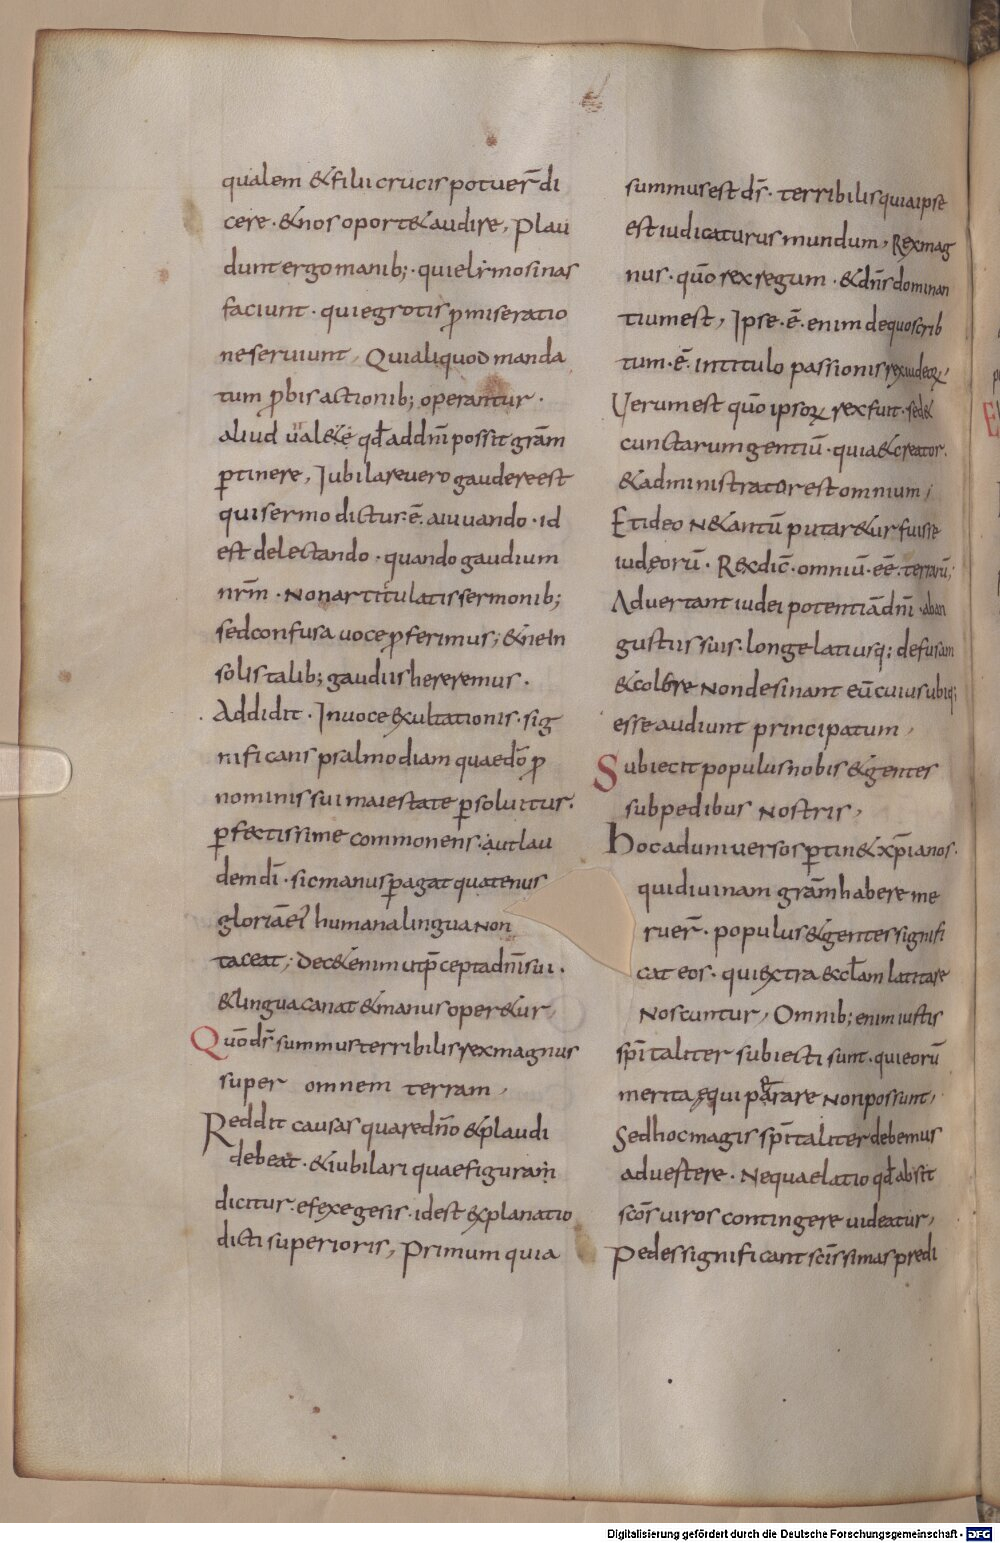 qualem & filii crucis potuer̄ di
cere · & nos oport& audire, Plau
dunt ergo manib; · qui elymosinas
faciunt · qui egrotis p̱ miseratio
ne seruiunt, Qui aliquod manda
tum p̱bis actionib; operantur ·
aliud ual&e qđ ad dn̄i possit gr̄am
ꝑtinere, Jubilare uero gaudere est
qui sermo dictur· ē· a iuuando · id
est delectando · quando gaudium
nr̄m · Non articulatis sermonib;
sed confusa uoce ꝓferimus; & ne in
solis talib; gaudiis hereremus ·
Addidit · In uoce exultationis · sig
nificans psalmodiam quae dō ꝓ
nominis sui maiestate ꝑsoluitur.
ꝑfectissime commonens · aut lau
dem dī · sic manus ꝑagat quatenus
gloriā ei humana lingua Non
taceat; Dec& enim ut p̄cepta dn̄i sui ·
& lingua canat & manus oper&ur,
Quō ds̄ summus terribilis rex magnus
super omnem terram,
Reddit causas quare dn̄o & plaudi
debeat · & iubilari quae figuram
dicitur · efexegesis · id est explanatio
dicti superioris, Primum quia
summus est ds̄ · terribilis quia ipse
est iudicaturus mundum, Rex mag
nus · quō rex regum · & dn̄s dominan
tium est, Ipse · ē · enim de quo scrib
tum · ē · in titulo passionis rex iudeoꝝ,
Verum est quō ipsoꝝ rex fuit · sed &
cunctarum gentiū · quia & creator.
& administrator est omnium,
Et ideo Ne tantū putar&ur fuisse
iudęorū · Rex dic̄ · omniū · ee̅ · terrarū;
Aduertant iudei potentiā dn̄i · ab an
gustiis suis · longe latiusq; defusam
& colere Non desinant eū cuius ubiq;
esse audiunt principatum,
Subiecit populus nobis & gentes
sub pedibus Nostris,
Hoc ad uniuersos ꝑtin& xp̄ianos ·
qui diuinam gr̄am habere me
ruer̄ · populus & gentes signifi
cat eos · qui extra eccl̄am latitare
Noscuntur, Omnib; enim iustis
spī taliter subiecti sunt · qui eorū
merita ęquiparare Non possunt,
Sed hoc magis spī taliter debemus
aduertere · Ne quae latio qđ absit
scōs uiros contingere uideatur,
Pedes significant scīssimas predi
Digitalisierung gefördert durch die Deutsche Forschungsgemeinschaft - DFG